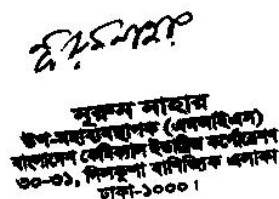 নূরুন নাহার
উপ-মহাব্যবস্থাপক (এমআইএস)
বাংলাদেশ কেমিক্যাল ইন্ডাস্ট্রিজ কর্পোরেশন
৩০-৩১, দিলকুশা বাণিজ্যিক এলাকা
ঢাকা-১০০০।